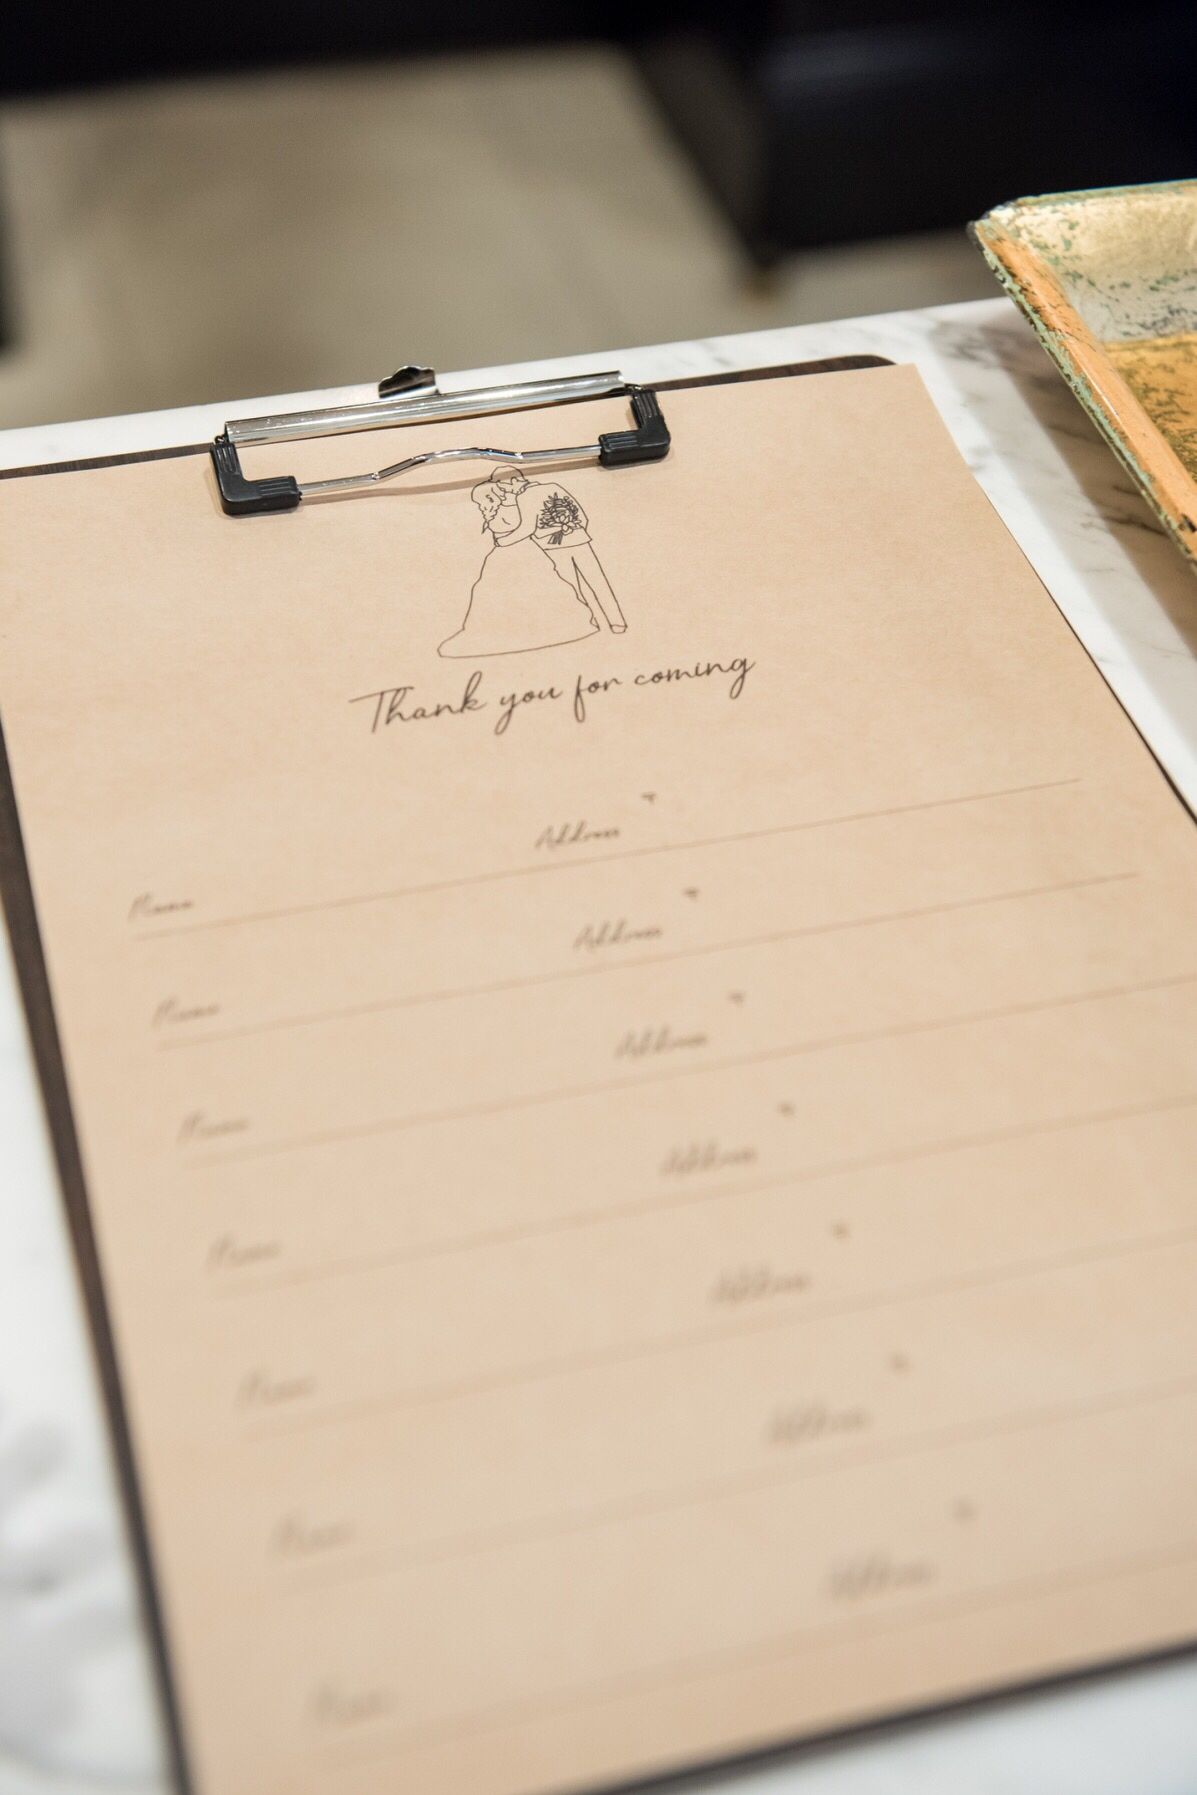 Thank you for coming
Address 〒
Name
Address 〒
Name
Address 〒
Name
Address 〒
Name
Address 〒
Name
Address 〒
Name
Address 〒
Name